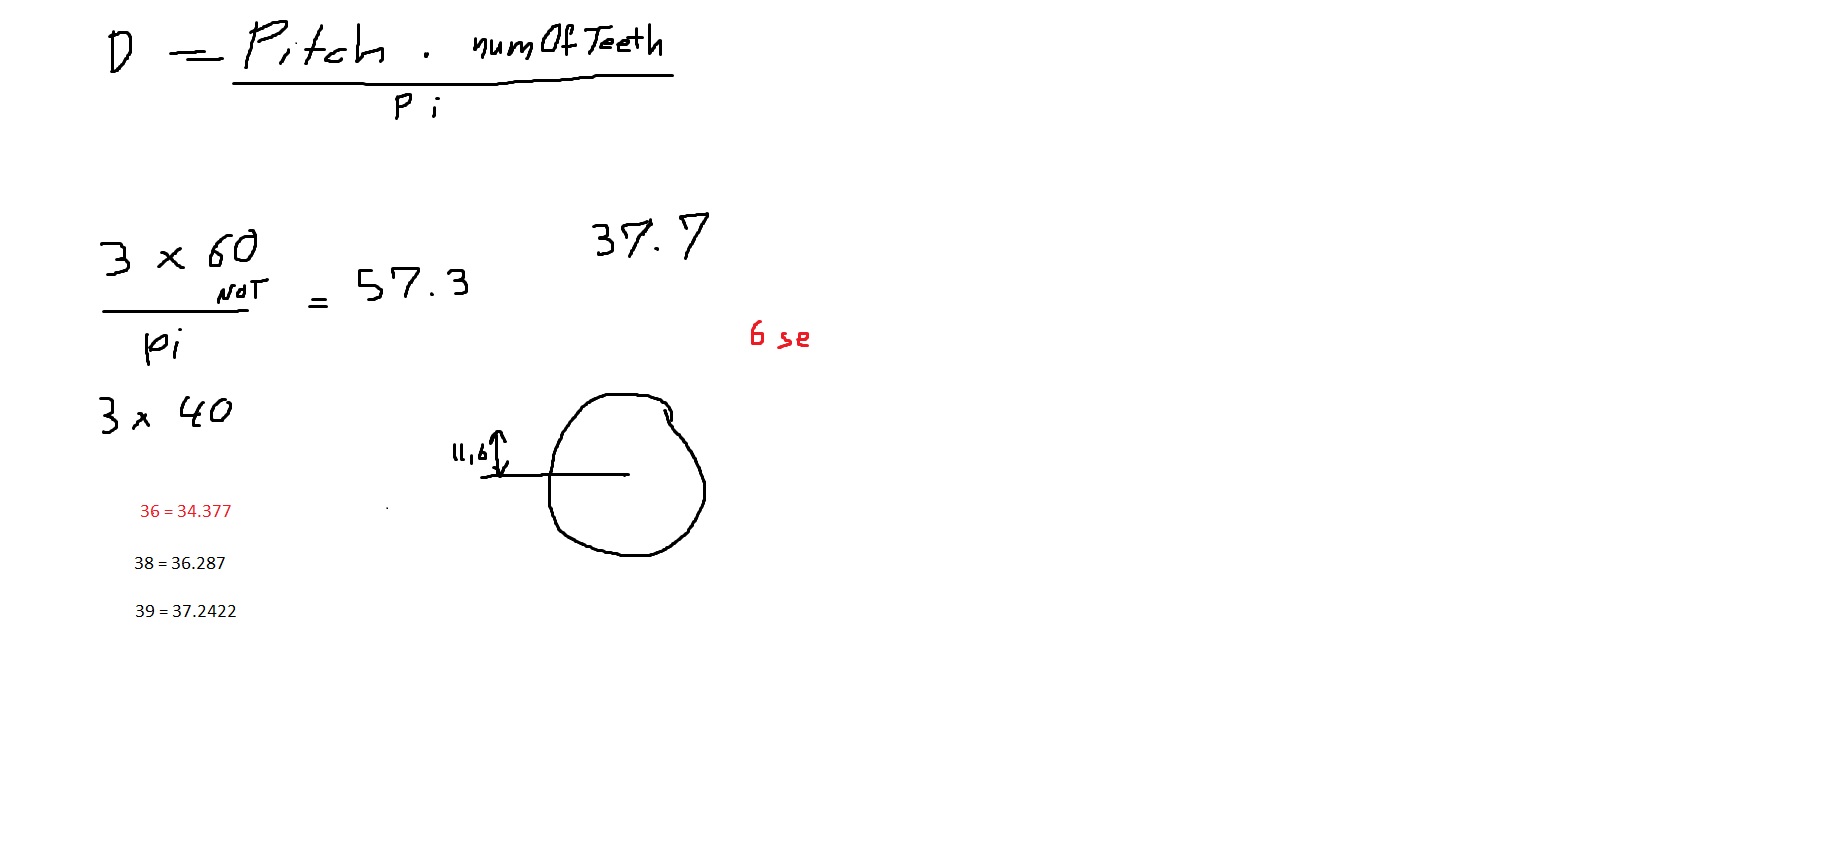 D = Pitch . numOfTeeth
Pi
3 x 60
NOT
= 57.3
37.7
pi
6 se
3 x 40
11,6
36 = 34.377
38 = 36.287
39 = 37.2422